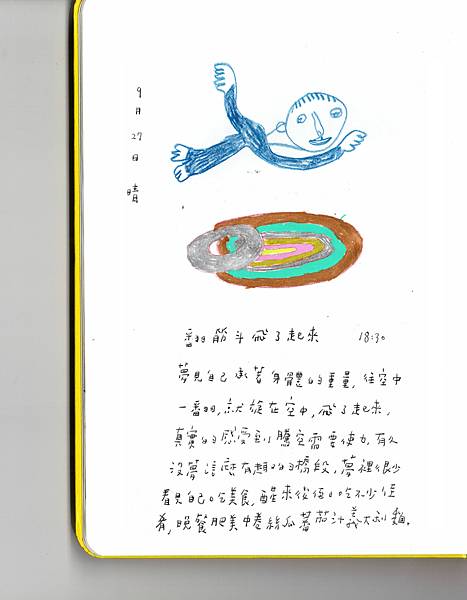 9月27日 晴
翻筋斗飛了起來 18:30
夢見自己承著身體的重量,往空中
一翻,就旋在空中,飛了起來,
真實的感受到騰空需要使力,有久
沒夢這麼有趣的的橋段,夢裡很少
看見自己吃美食,醒來後吃不少佳
肴,晚餐肥美中卷絲瓜蕃茄汁義大利麵。